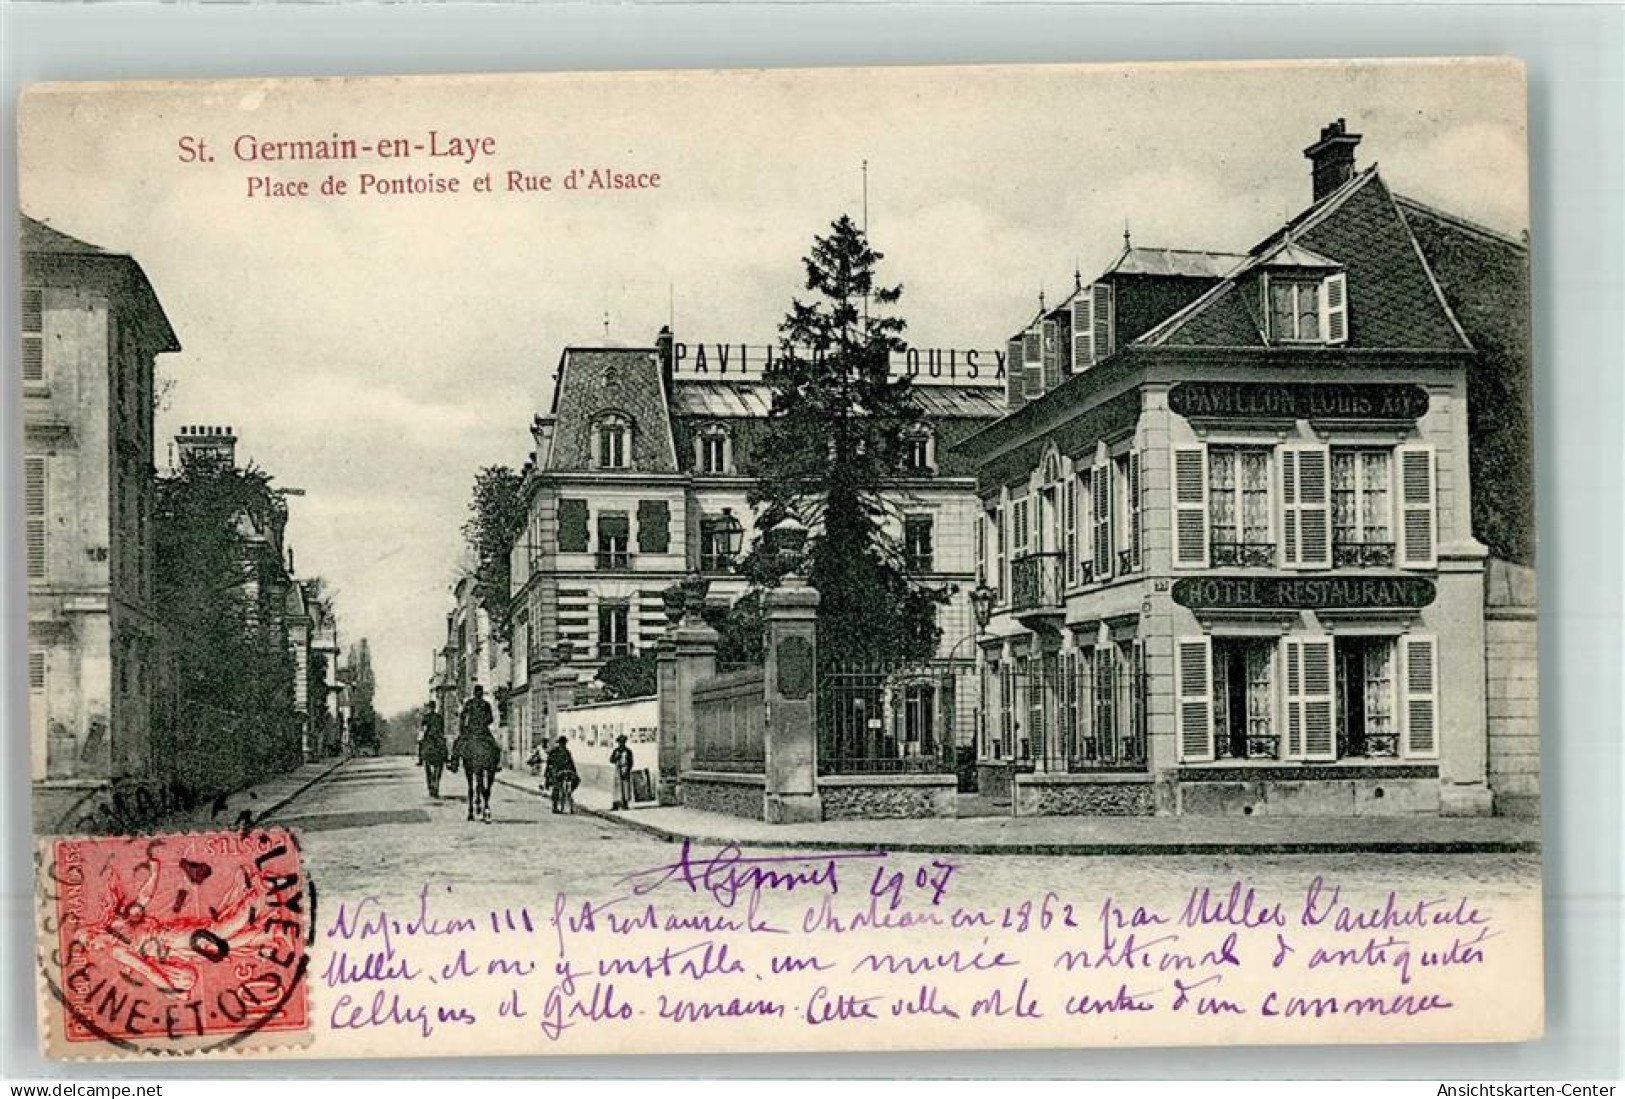 St. Germain-en-Laye
Place de Pontoise et Rue d'Alsace
PAVILLO OUIS X
PAVILLON LOUIS XIV
HOTEL RESTAURANT
1907
Napoléon III fit restaurer le chateau en 1862 par Millet l'architecte
Millet, et on y installa un musée national d'antiquités
Celtiques et Gallo-romaines. Cette ville est le centre d'un commerce
LAYE
INE-ET-OISE
POSTES
10
Ansichtskarten-Center